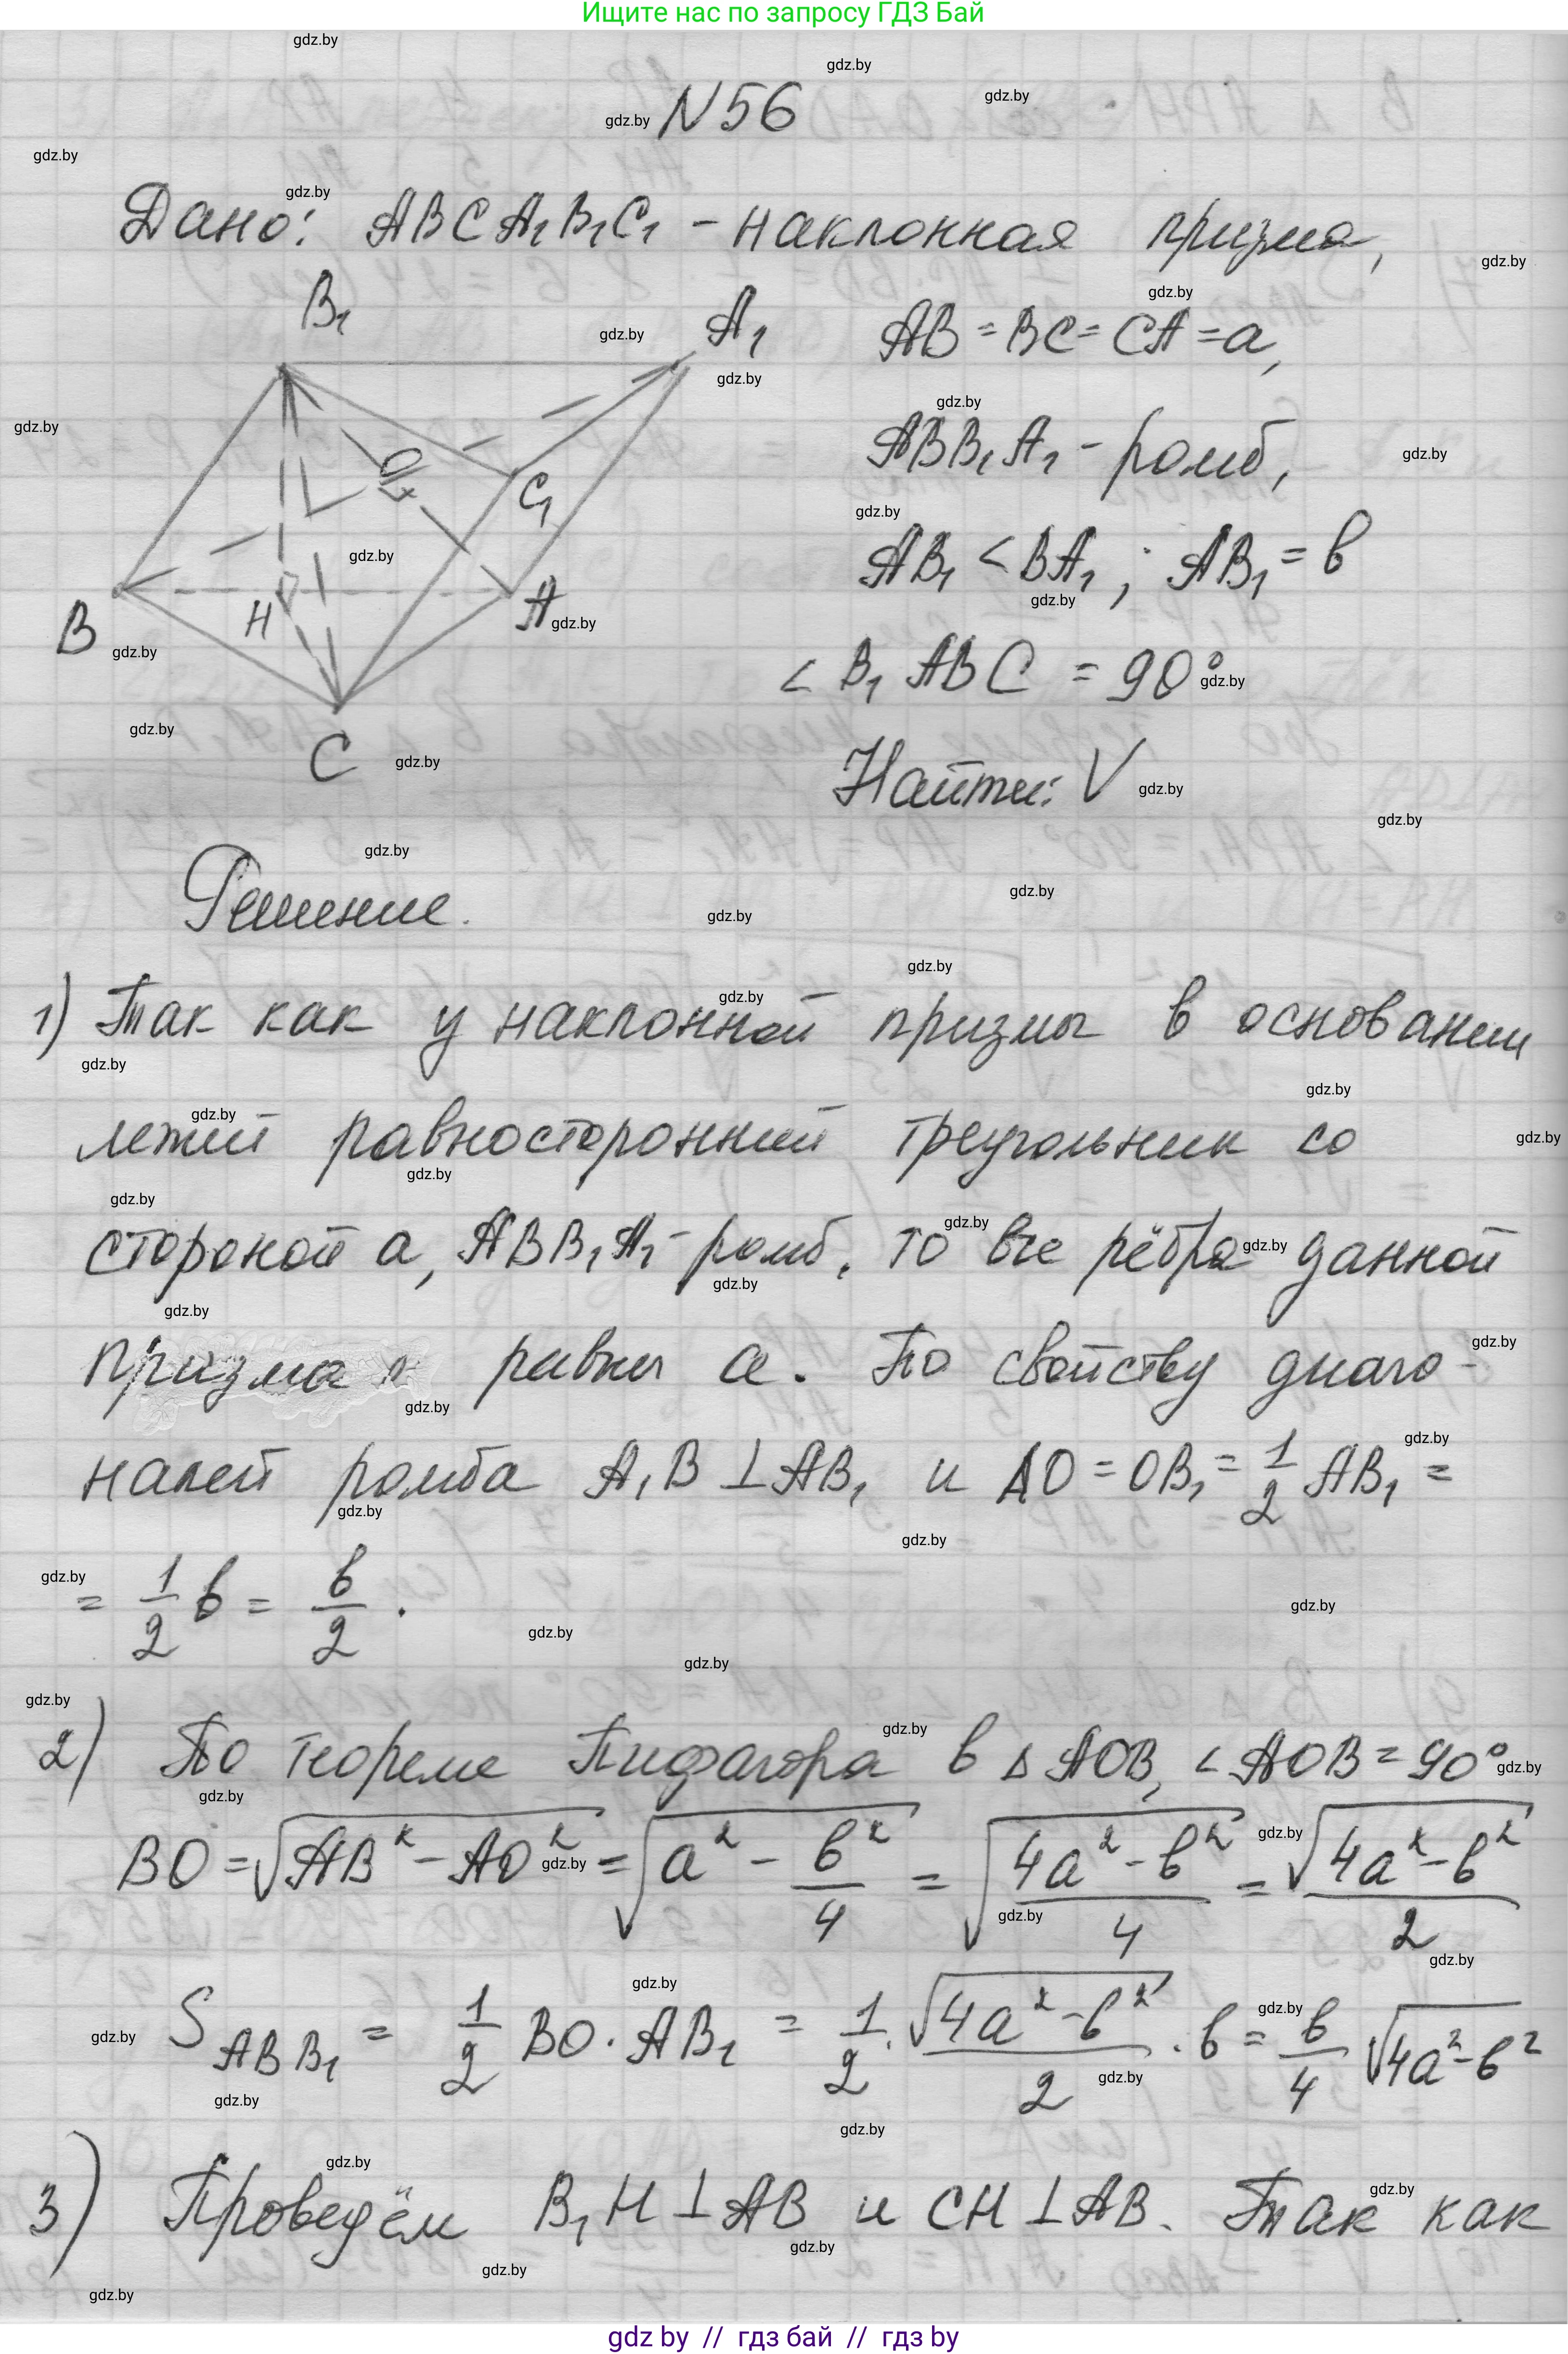 Ищите нас по запросу ГДЗ Бай
N56
Дано: ABCA₁B₁C₁ - наклонная призма,
AB = BC = CA = a,
ABB₁A₁ - ромб,
AB₁ < BA₁; AB₁ = b
∠ B₁ABC = 90°
Найти: V
B₁
A₁
O
C₁
B
H
A
C
Решение.
1) Так как у наклонной призмы в основании
лежит равносторонний треугольник со
стороной a, ABB₁A₁ - ромб, то все рёбра данной
призма равны a. По свойству диаго-
налей ромба A₁B ⊥ AB₁ и AO = OB₁ = 1/2 AB₁ =
= 1/2 b = b/2.
2) По теореме Пифагора в △ AOB, ∠ AOB = 90°
BO = √(AB² - AO²) = √(a² - b²/4) = √((4a² - b²)/4) = √(4a² - b²)/2
S ABB₁ = 1/2 BO · AB₁ = 1/2 · √(4a² - b²)/2 · b = b/4 √(4a² - b²)
3) Проведём B₁H ⊥ AB и CH ⊥ AB. Так как
gdz by // гдз бай // гдз by
gdz.by